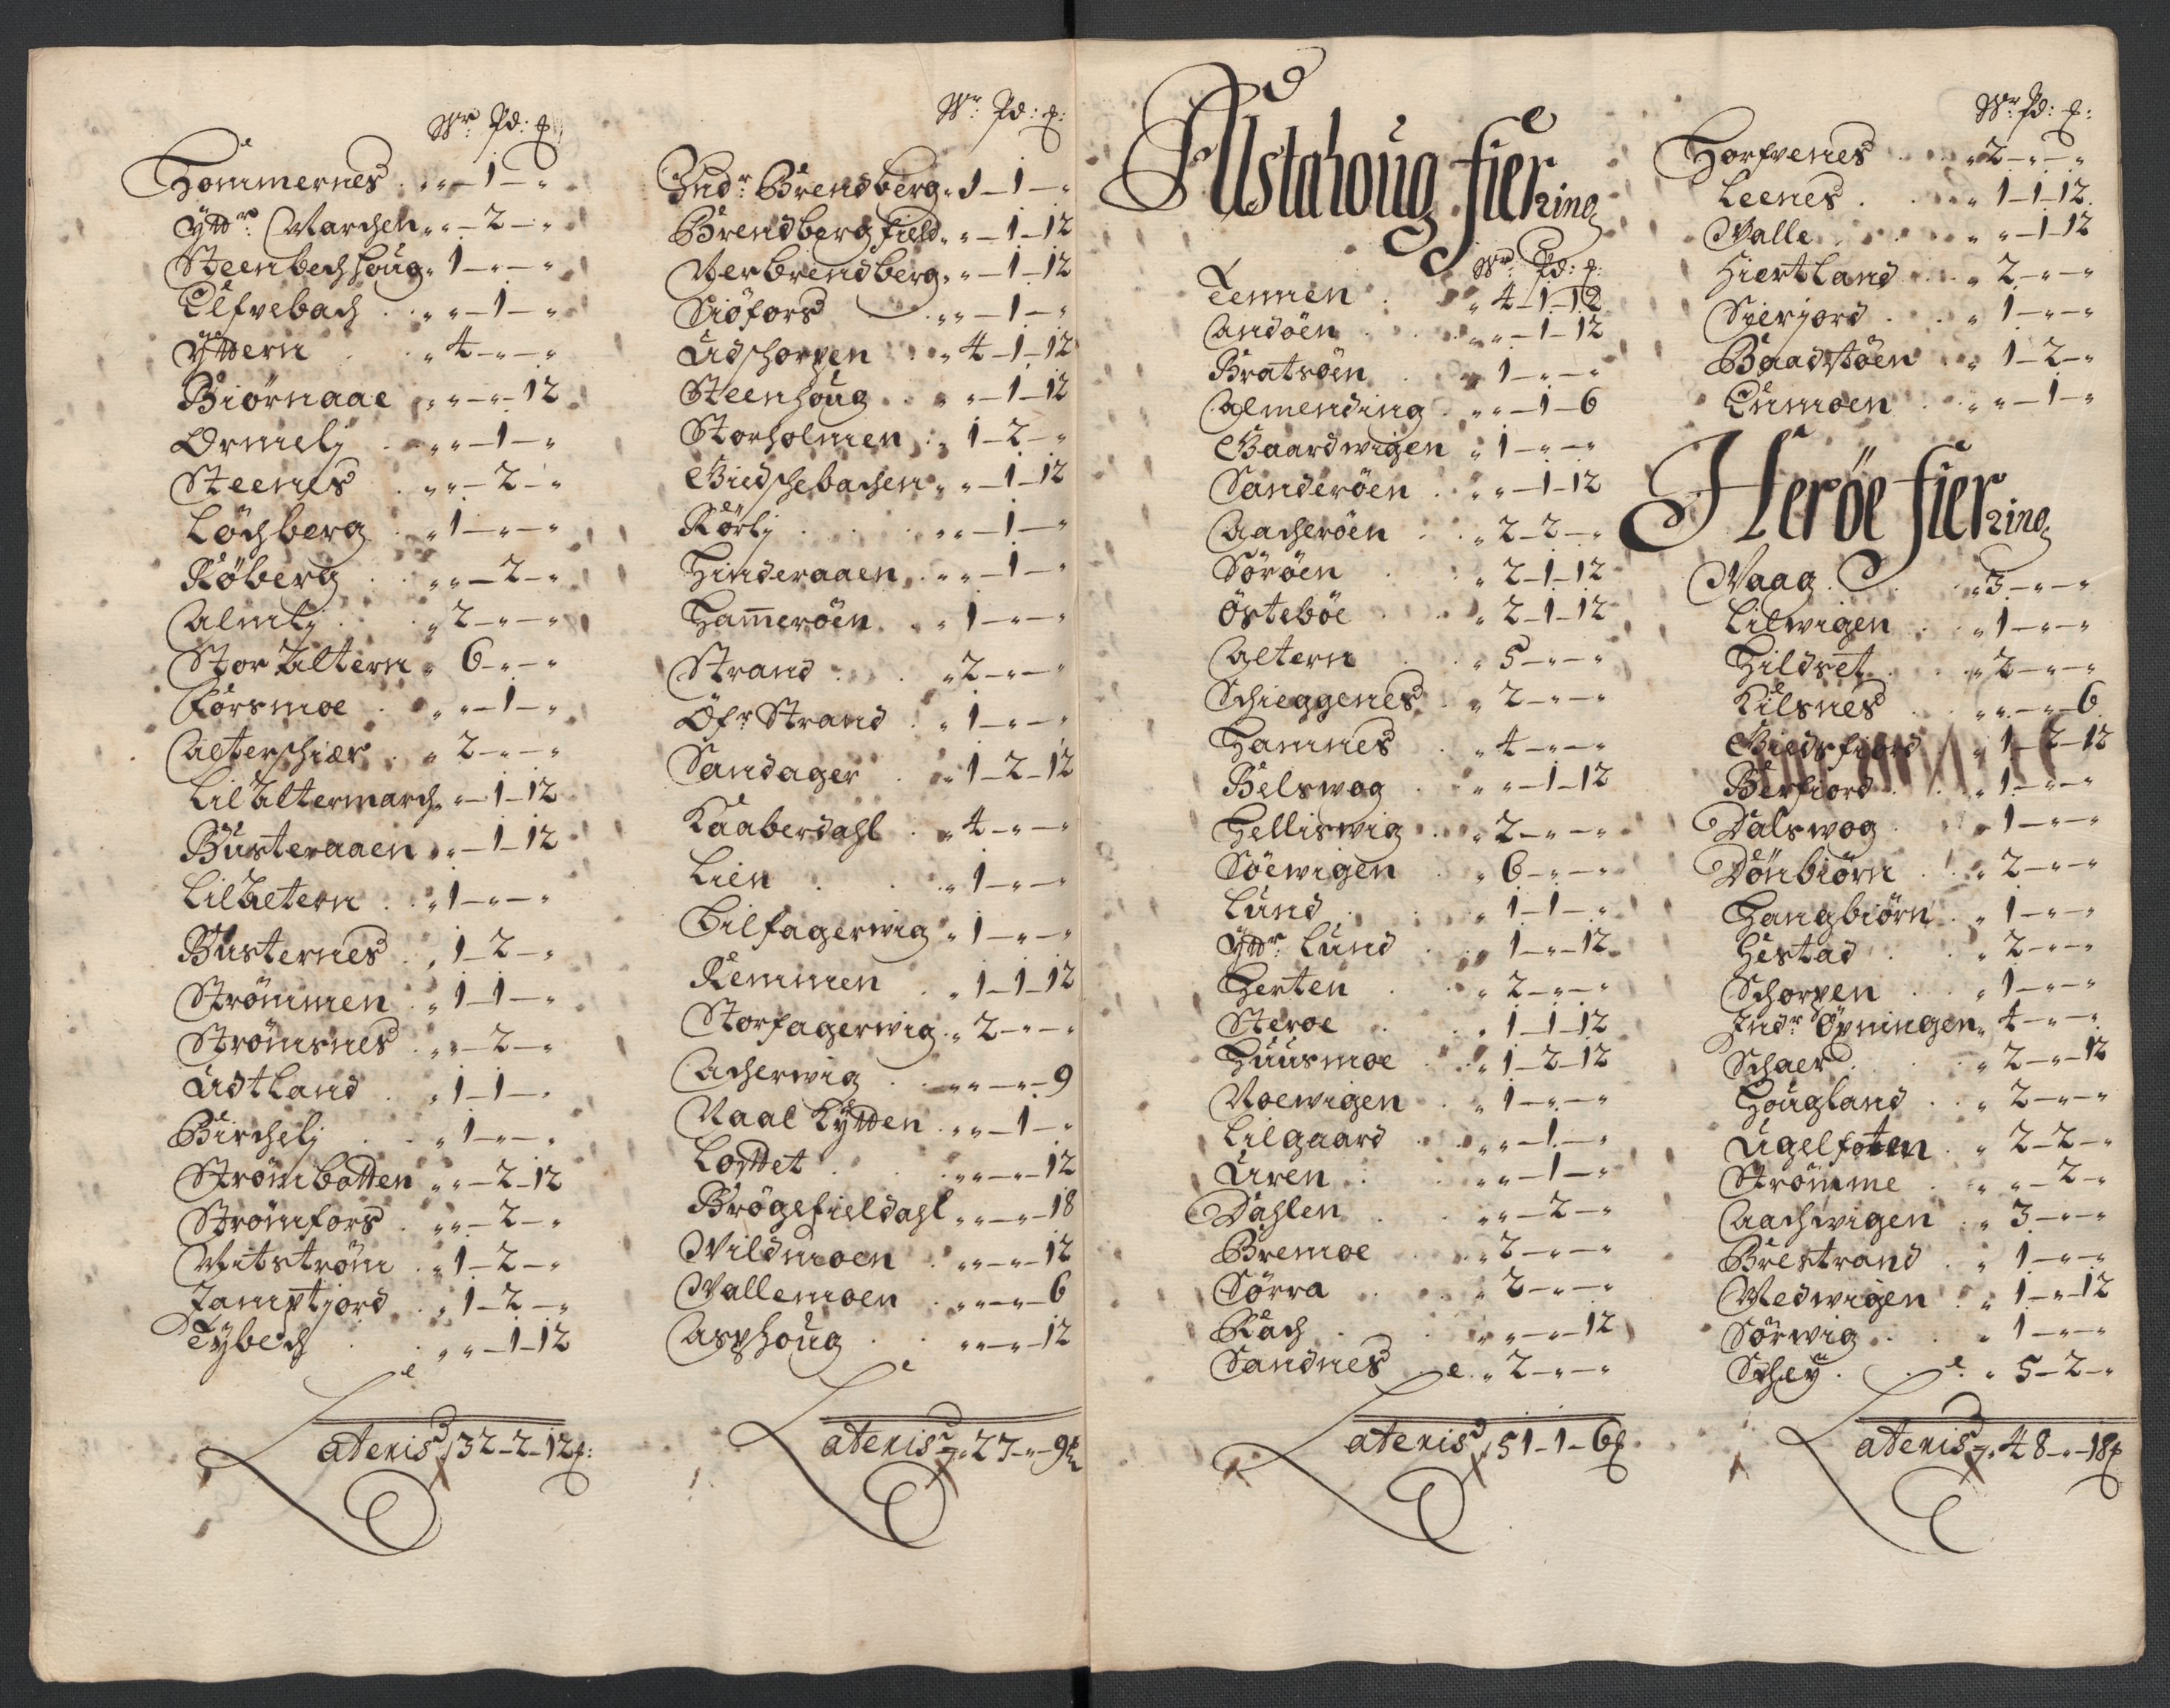 Wr Pd: ℔:
Hommernes . „ „ – 1 – „
Yttr: Marchen „ „ – 2 – „
Steenbechhoug „ 1 – „ – „
Elfvebach . „ „ – 1 – „
Yttern „ 4 – „ – „
Biörnaae „ „ – „ – 12
Ormelj „ „ – 1 – „
Steenes „ „ – 2 – „
Löchberg „ 1 – „ – „
Röberg „ „ – 2 – „
Almlj „ 2 – „ – „
Stor Altern „ 6 – „ – „
Forsmoe „ „ – 1 – „
Alterschiær „ 2 – „ – „
Lil Altermarch „ „ – 1 – 12
Busteraaen „ „ – 1 – 12
Lil Altern „ 1 – „ – „
Busternes „ 1 – 2 – „
Strömmen „ 1 – 1 – „
Strömsnes „ „ – 2 – „
Udtland „ 1 – 1 – „
Birchelj „ 1 – „ – „
Strömbotten „ „ – 2 – 12
Strömfors „ „ – 2 – „
Mitström „ 1 – 2 – „
Jamptjord „ 1 – 2 – „
Tybech „ „ – 1 – 12
Lateris 32 – 2 – 12 ℔:
Wr: Pd: ℔:
Indr: Brendberg „ 1 – 1 – „
Brendbergfield „ „ – 1 – 12
Verbrendberg „ „ – 1 – 12
Siöfors „ „ – 1 – „
Udschorpen „ 4 – 1 – 12
Steenhoug „ „ – 1 – 12
Storholmen „ 1 – 2 – „
Giedschebachen „ „ – 1 – 12
Rörlj „ „ – 1 – „
Hinderaaen „ „ – 1 – „
Hameröen „ 1 – „ – „
Strand „ 2 – „ – „
Öfr Strand „ 1 – „ – „
Sandager „ 1 – 2 – 12
Kaaberdahl „ 4 – „ – „
Lien „ 1 – „ – „
Lilfagerwig „ 1 – „ – „
Remmen „ 1 – 1 – 12
Storfagerwig „ 2 – „ – „
Acherwig „ „ – „ – 9
Naal Kytten „ „ – 1 – „
Lottet „ „ – „ – 12
Brögefieldahl „ „ – „ – 18
Vildmoen „ „ – „ – 12
Vallemoen „ „ – „ – 6
Asphoug „ „ – „ – 12
Lateris „ 27 – „ – 9 ℔
Alstahoug fierring
Wr: Pd: ℔:
Tennen „ 4 – 1 – 12
Andöen „ „ – 1 – 12
Bratsöen „ 1 – „ – „
Almending „ „ – 1 – 6
Gaardwigen „ 1 – „ – „
Sanderöen „ „ – 1 – 12
Aacheröen „ 2 – 2 – „
Söröen „ 2 – 1 – 12
Östeböe „ 2 – 1 – 12
Altern „ 5 – „ – „
Schieggenes „ 2 – „ – „
Hamnes „ 4 – „ – „
Belswog „ „ – 1 – 12
Helliswig „ 2 – „ – „
Söewigen „ 6 – „ – „
Lund „ 1 – 1 – „
Yttr: Lund „ 1 – „ – 12
Herten „ 2 – „ – „
Steroe „ 1 – 1 – 12
Huusmoe „ 1 – 2 – 12
Noewigen „ 1 – „ – „
Lilgaard „ „ – 1 – „
Uren „ „ – 1 – „
Dahlen „ „ – 2 – „
Bremoe „ 2 – „ – „
Sörra „ 2 – „ – „
Rach „ „ – „ – 12
Sandnes „ 2 – „ – „
Lateris 51 – 1 – 6 ℔
Wr: Pd: ℔:
Horfvenes „ 2 – „ – „
Leenes „ 1 – 1 – 12
Valle „ „ – 1 – 12
Hiertland „ 2 – „ – „
Sierjord „ 1 – „ – „
Baadstöen „ 1 – 2 – „
Enmoen „ „ – 1 – „
Heröe fierring
Vaag „ 3 – „ – „
Lilwigen „ 1 – „ – „
Hildset „ 2 – „ – „
Kilsnes „ „ – „ – 6
Giedsfiord „ 1 – 2 – 12
Berfiord „ 1 – „ – „
Dalswog „ 1 – „ – „
Dönbiörn „ 2 – „ – „
Hangbiörn „ 1 – „ – „
Hestad „ 2 – „ – „
Schorpen „ 1 – „ – „
Indr Öyningen „ 4 – „ – „
Schaer „ 2 – „ – 12
Hougland „ 2 – „ – „
Ugelfoten „ 2 – 2 – „
Strömme „ „ – 2 – „
Aachwigen „ 3 – „ – „
Brestrand „ 1 – „ – „
Medwigen „ 1 – „ – 12
Sörwig „ 1 – „ – „
Schey „ 5 – 2 – „
Lateris „ 48 – „ – 18 ℔